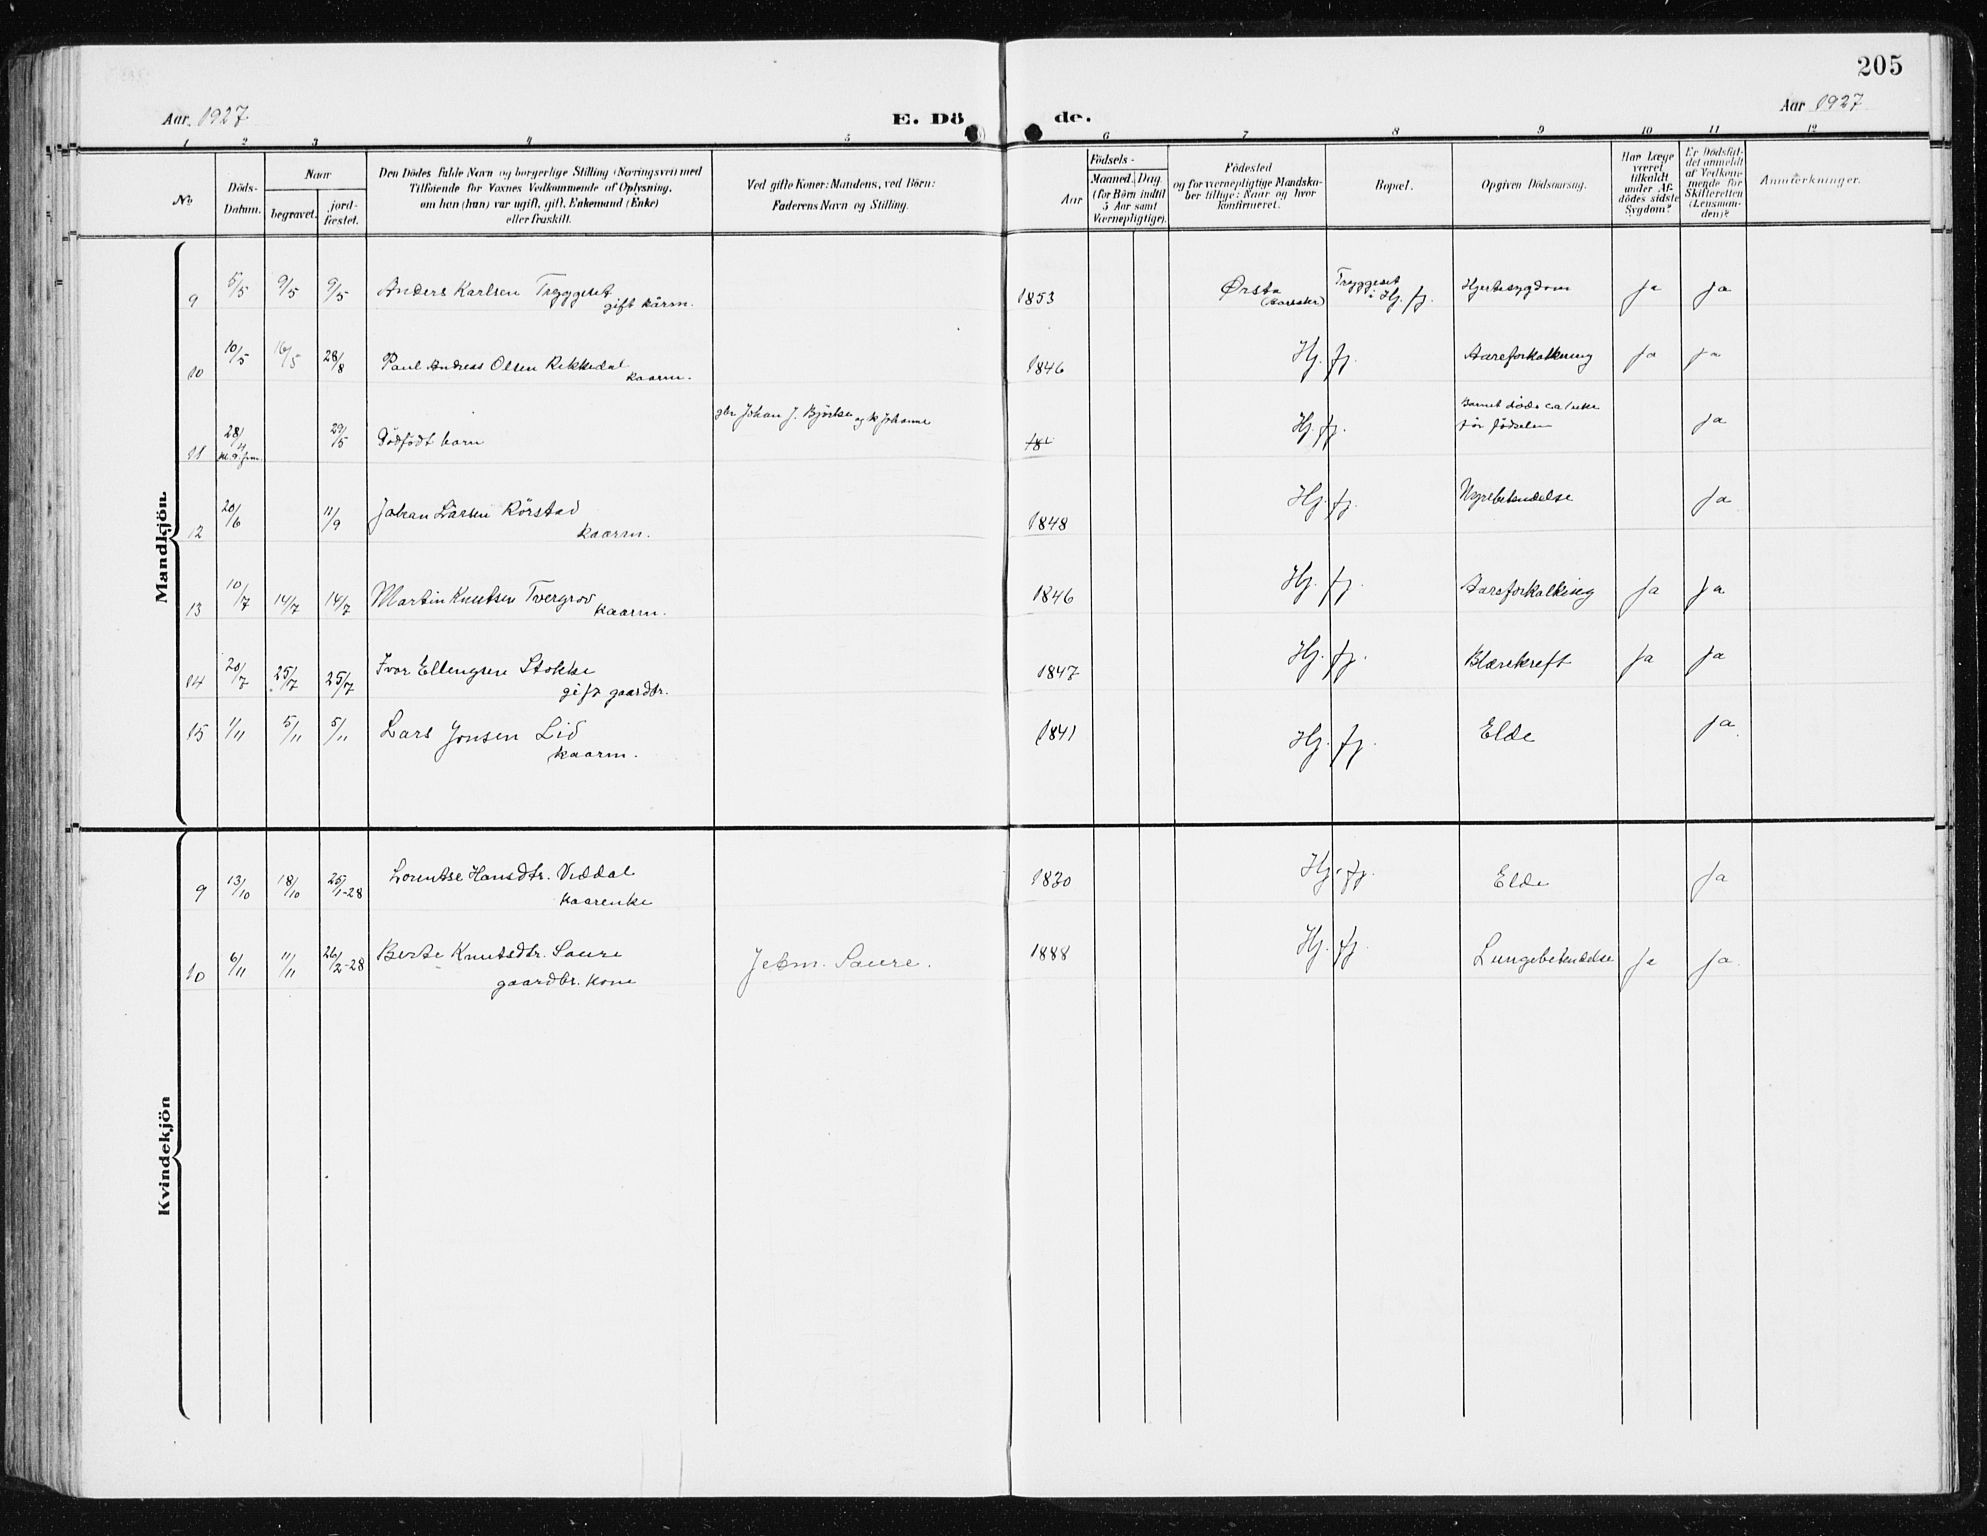 205
Aar 1927
E. Dö
de.
Aar 1927
1 2 3 4 5 6 7 8 9 10 11 12
No
Döds-
Datum.
Naar
begravet.
jord-
fæstet.
Den Dödes fulde Navn og borgerlige Stilling (Næringsvei) med
Tilföiende for Voxnes Vedkommende af Oplysning,
om han (hun) var ugift, gift, Enkemand (Enke)
eller fraskilt.
Ved gifte Koner: Mandens, ved Börn:
Faderens Navn og Stilling.
Födsels-
Aar
Maaned. Dag
(for Börn indtil
5 Aar samt
Værnepligtige).
Födested
og for værnepligtige Mandska-
ber tillige: Naar og hvor
konfirmeret.
Bopæl.
Opgiven Dödsaarsag.
Har Læge
været
tilkaldt
under Af-
dödes sidste
Sygdom?
Er Dödsfal-
det anmeldt
af Vedkom-
mende for
Skifteretten
(Lensman-
den)?
Anmærkninger.
Mandkjön.
9 5/5 9/5 9/5 Anders Karlsen Tryggeset 1853 Ørsta Tryggeset Hjertesygdom Ja Ja
gift kårm. i Hj. fj.
10 10/5 16/5 28/8 Paul Andreas Olsen Rekkedal 1846 Hj. fj. Aareforkalkning Ja Ja
kaarm.
11 28/4 29/5 Dödfödt barn gbr Johan J. Björlse og k Johanne 181 Hj. fj. Barnet döde ca 1 uke Ja
för födselen
12 20/6 11/9 Johan Larsen Rörstad 1848 Hj. fj. Nyrebetendelse Ja
kaarm.
13 10/7 14/7 14/7 Martin Knutsen Tvergrov 1846 Hj. fj. Aareforkalking Ja Ja
kaarm.
14 20/7 25/7 25/7 Ivar Ellengsen Stokke 1847 Hj. fj. Blærekreft Ja Ja
gift gaardbr.
15 1/11 5/11 5/11 Lars Jonsen Lid 1841 Hj. fj. Elde Ja
kaarm.
Kvindekjön
9 13/10 18/10 25/1-28 Lorentse Hansdtr. Viddal 1830 Hj. fj. Elde Ja
kaarenke
10 6/11 11/11 26/2-28 Berte Knutsdtr. Saure Jetm. Saure. 1888 Hj. fj. Lungebetendelse Ja Ja
gaardbr. kone